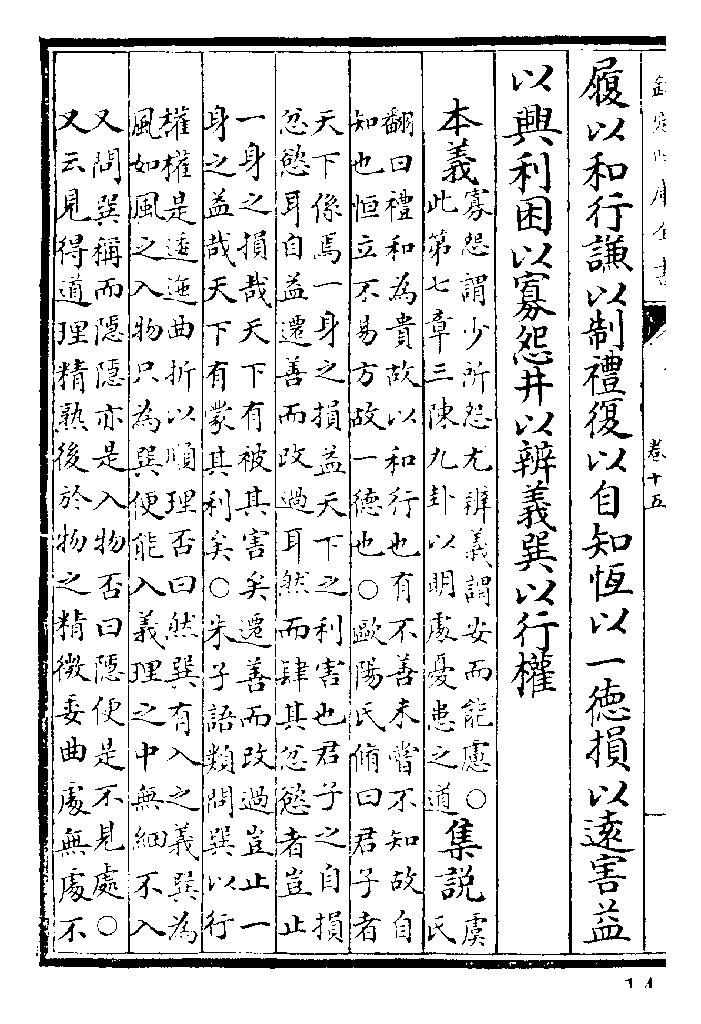 欽定四庫全書
卷十五
履以和行謙以制禮復以自知恆以一德損以遠害益
以興利困以寡怨井以辨義巽以行權
本義
寡怨謂少所怨尤辨義謂安而能慮○
此第七章三陳九卦以明處憂患之道
集説
虞
氏
翻曰禮和為貴故以和行也有不善未嘗不知故自
知也恒立不易方故一德也○歐陽氏脩曰君子者
天下係焉一身之損益天下之利害也君子之自損
忿慾耳自益遷善而改過耳然而肆其忿慾者豈止
一身之損哉天下有被其害矣遷善而改過豈止一
身之益哉天下有蒙其利矣○朱子語類問巽以行
權權是逶迤曲折以順理否曰然巽有入之義巽為
風如風之入物只為巽便能入義理之中無細不入
又問巽稱而隱隱亦是入物否曰隱便是不見處○
又云見得道理精熟後於物之精微委曲處無處不